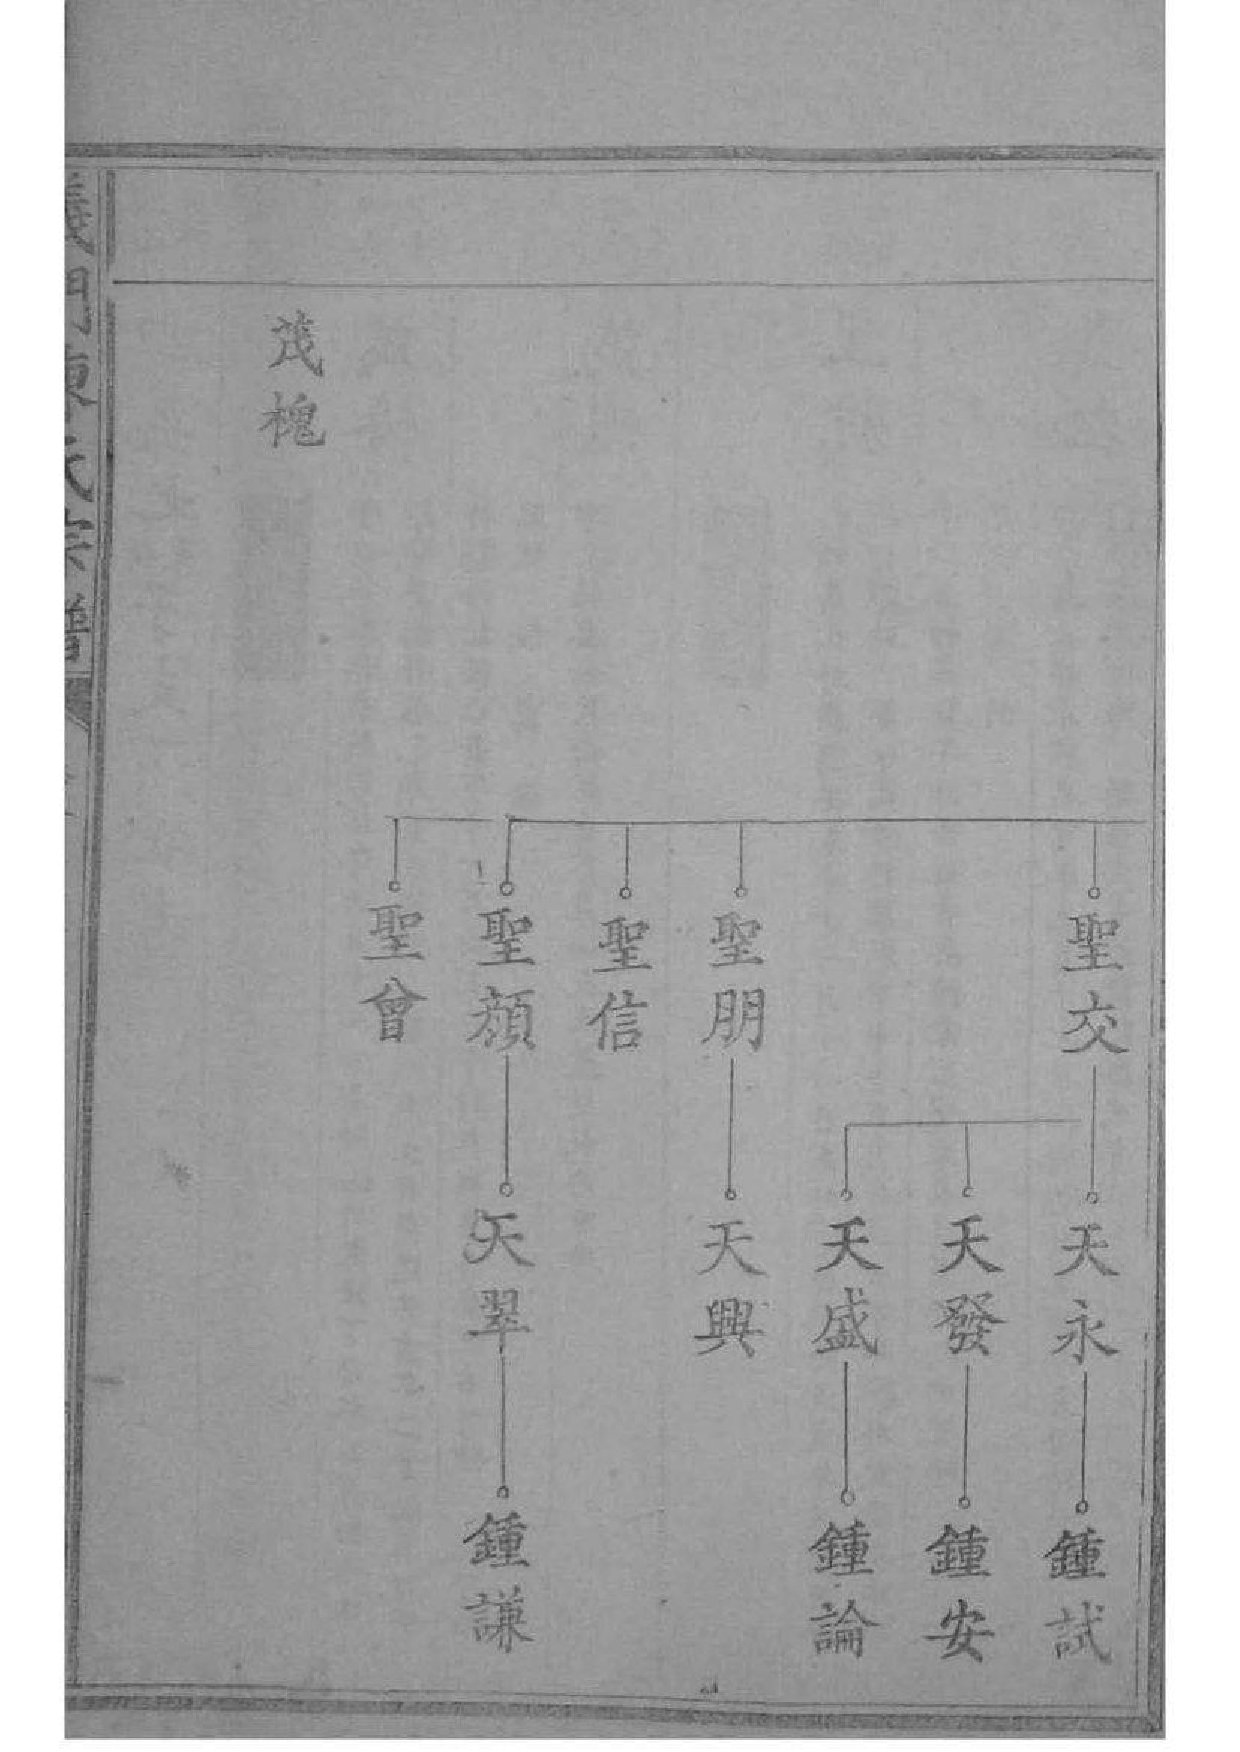 聖交
天永
鍾試
天發
鍾安
天盛
鍾論
聖朋
天興
聖信
聖顔
天翠
鍾謙
聖曾
茂槐
義門陳氏宗譜